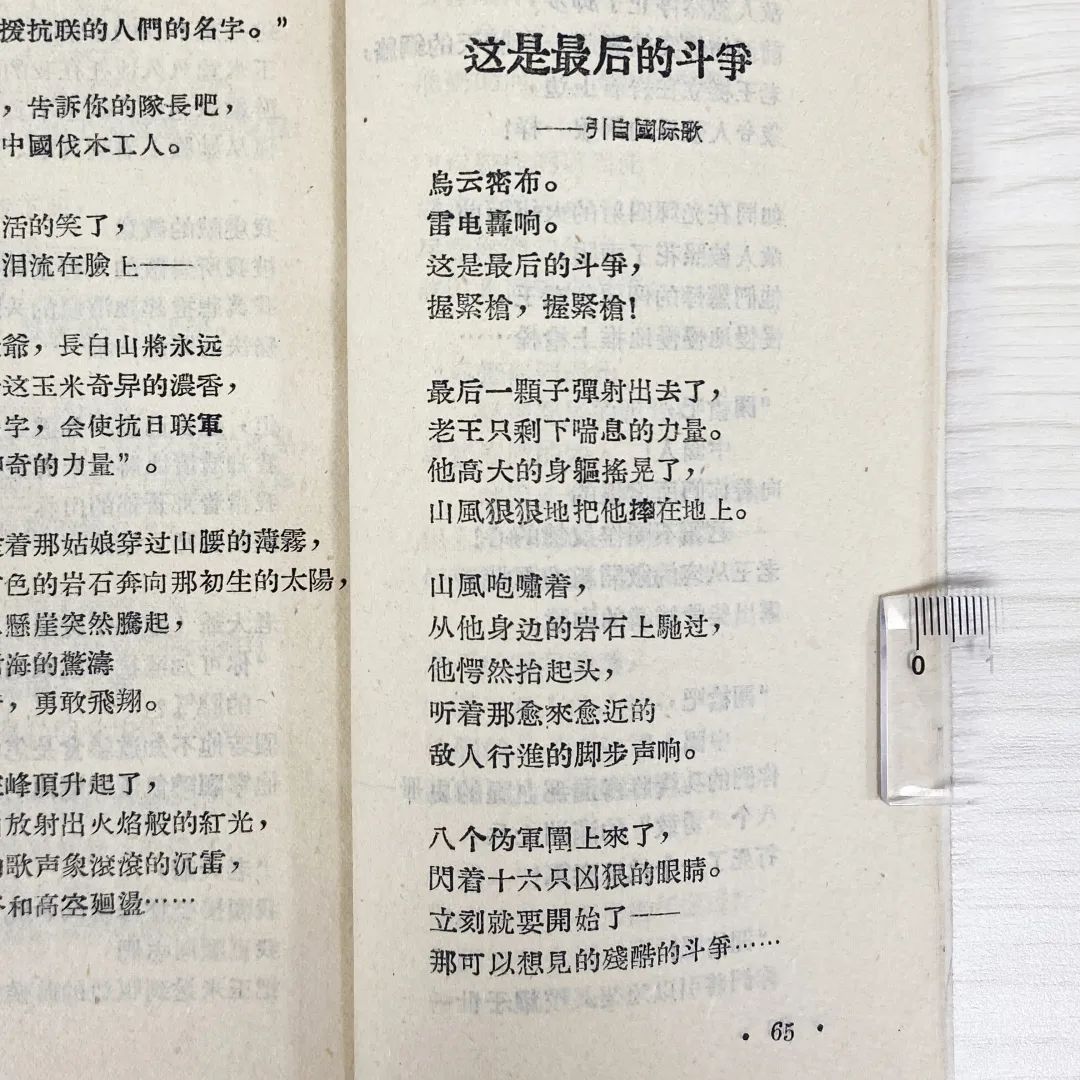 援抗联的人們的名字。”
，告訴你的隊長吧，
中國伐木工人。
活的笑了，
泪流在臉上——
爺，長白山將永远
这玉米奇异的濃香，
字，会使抗日联軍
奇的力量”。
着那姑娘穿过山腰的薄霧，
色的岩石奔向那初生的太陽，
懸崖突然騰起，
海的驚濤
，勇敢飛翔。
峰頂升起了，
放射出火焰般的紅光，
歌声象滾滾的沉雷，
和高空廻盪……
这是最后的斗爭
——引自國际歌
烏云密布。
雷电轟响。
这是最后的斗爭，
握緊槍，握緊槍！
最后一顆子彈射出去了，
老王只剩下喘息的力量。
他高大的身軀搖晃了，
山風狠狠地把他摔在地上。
山風咆嘯着，
从他身边的岩石上馳过，
他愕然抬起头，
听着那愈來愈近的
敌人行進的脚步声响。
八个伪軍圍上來了，
閃着十六只凶狠的眼睛。
立刻就要開始了——
那可以想見的殘酷的斗爭……
• 65 •
0
1